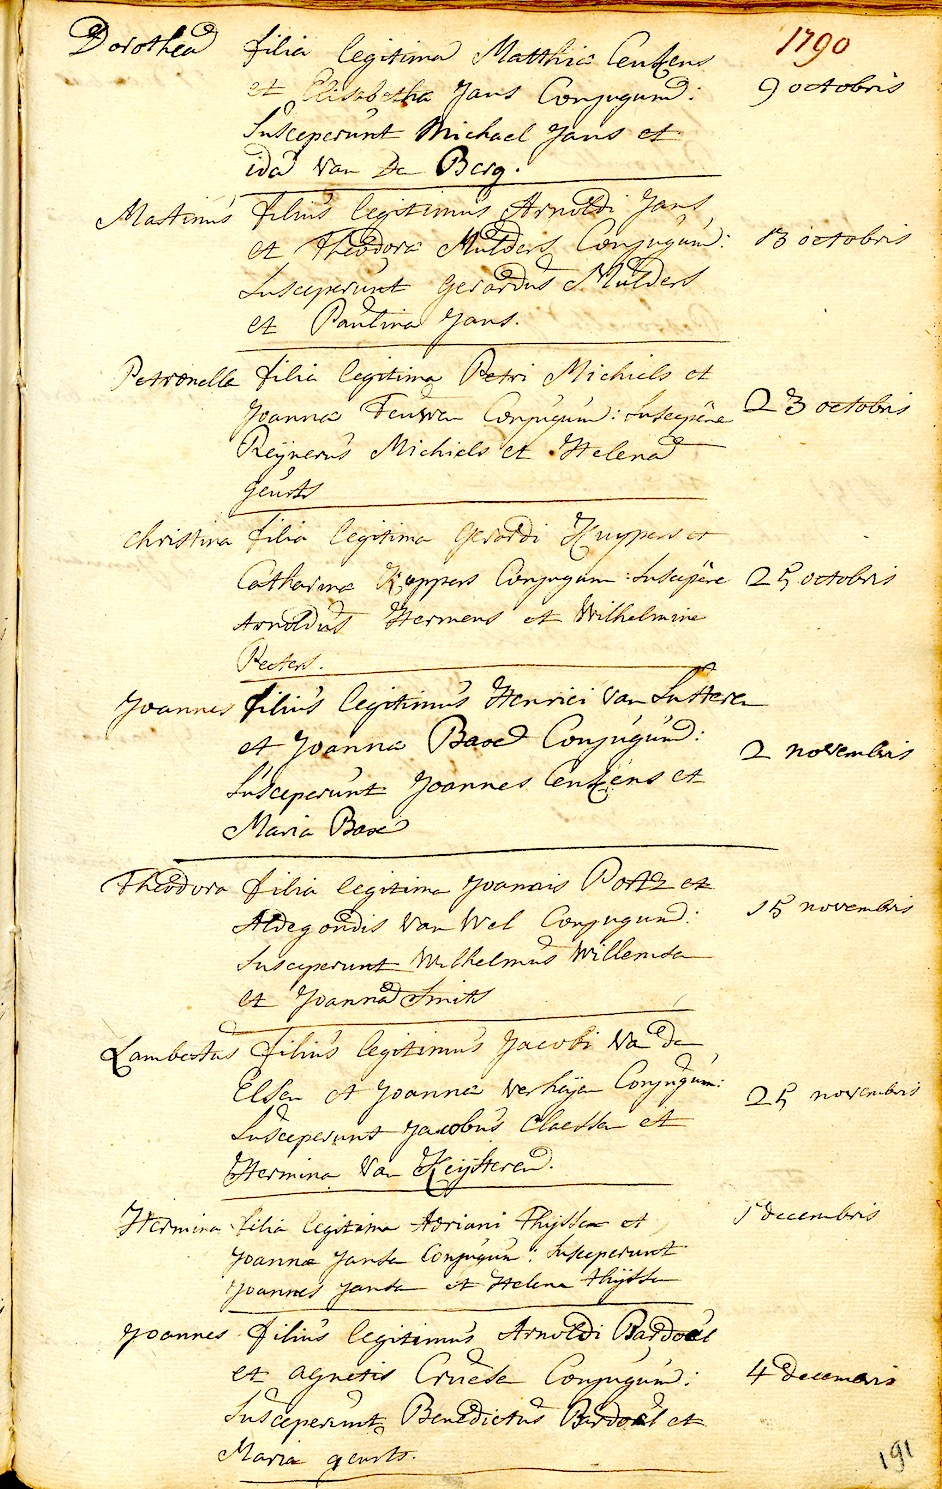 1790
Dorothea filia legitima Matthiæ Ceuleus
et Elisabetha Jans Conjugum: 9 octobris
Susceperunt Michael Jans et
ida Van De Berg.
Martinus filius legitimus Arnoldi Jans
et Theodoræ Mulders Conjugum: 13 octobris
Susceperunt Gerardus Mulders
et Paulina Jans.
Petronella filia legitima Petri Michiels et
Joannæ Teuwen Conjugum: Suscepêre 23 octobris
Reijnerus Michiels et Helena
geurts
christina filia legitima Gerardi Kuypers et
Catharinæ Koppers Conjugum: Suscepêre 25 octobris
Arnoldus Hermens et Wilhelmine
Peeters.
Joannes filius legitimus Henrici Van Sutteren
et Joannæ Baxe Conjugum: 2 novembris
Susceperunt Joannes et
Maria Baxe
Theodora filia legitima Joannis Portz et
Aldegondis Van Wel Conjugum: 15 novembris
Susceperunt Wilhelmus Willemsen
et Joanna Smits
Lambertus filius legitimus Jacobi Van de
Elsen et Joannæ Verheijen Conjugum: 25 novembris
Susceperunt Jacobus Claessen et
Hermina Van Keijsteren.
Hermina filia legitima Adriani Thijssen et 1 decembris
Joannæ Jansen Conjugum: Susceperunt
Joannes Jansen et Helena thijssen
Joannes filius legitimus Arnoldi Bardoel
et agnetis Cruesen Conjugum: 4 decembris
Susceperunt Benedictus Bardoel et
Maria geurts.
191